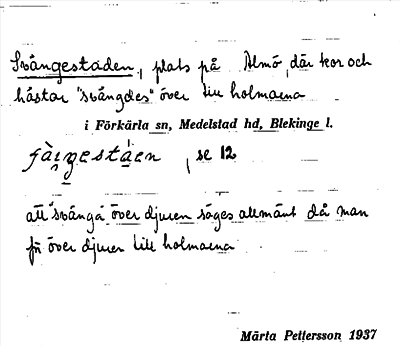 Svångestaden, plats på Almö, där kor och
hästar "svångdes" över till holmarna
i Förkärla sn, Medelstad hd, Blekinge l.
, se 12
att "svånga" över djuren säges allmänt då man
för över djuren till holmarna
Märta Pettersson 1937